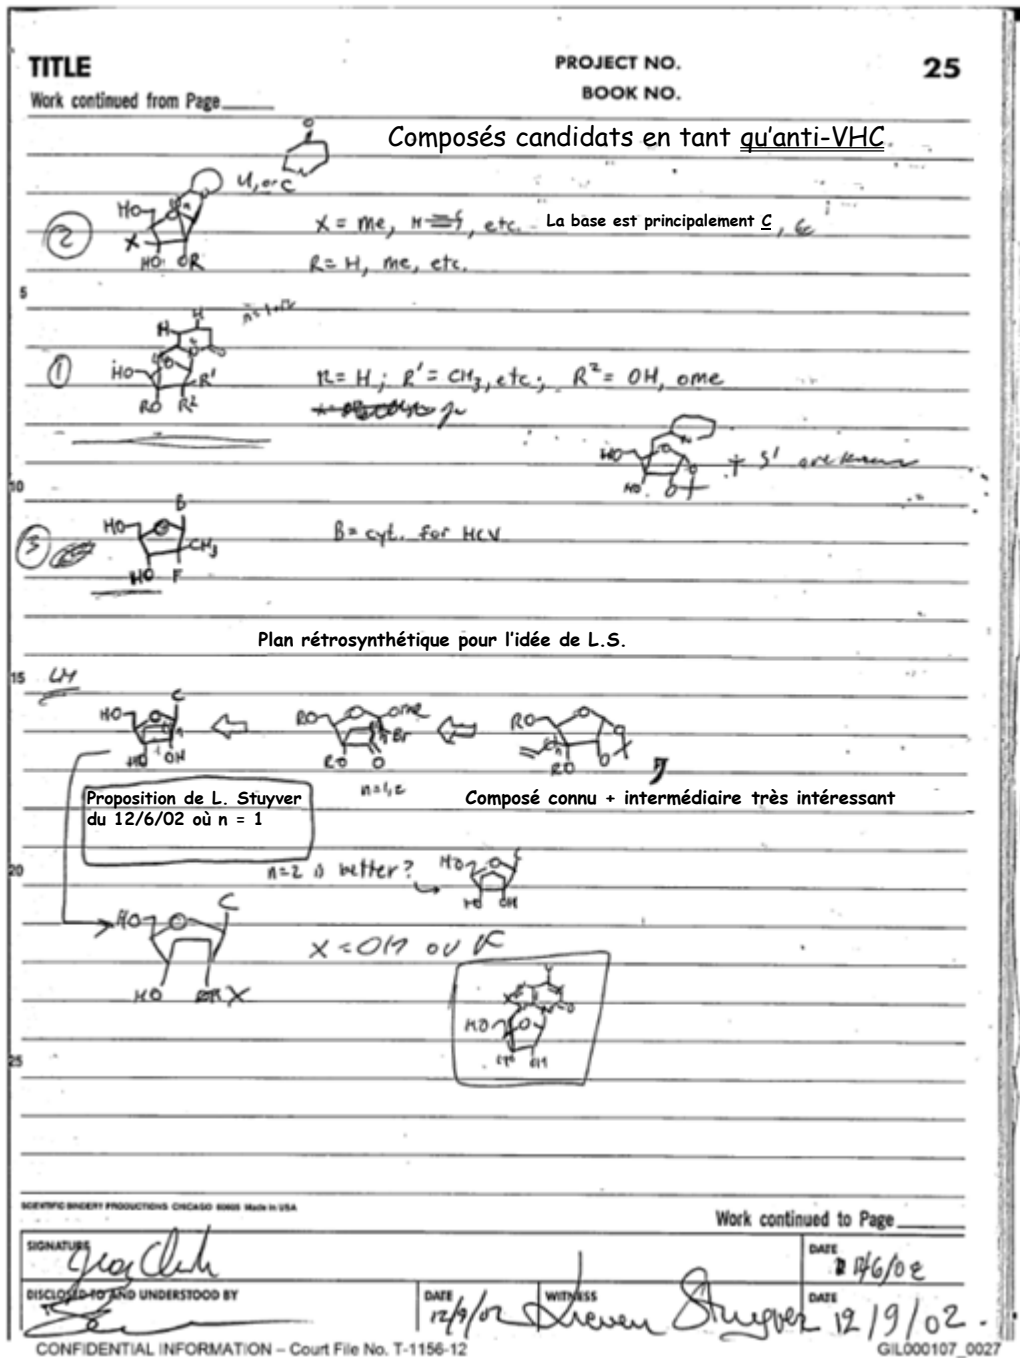 TITLE
PROJECT NO.
25
Work continued from Page
BOOK NO.
Composés candidats en tant qu'anti-VHC
O
U, or C
HO
②
X
X = me, H≡, etc. La base est principalement C,
HO OR
R = H, me, etc.
5
H H
①
HO
R'
R = H; R' = CH3, etc; R² = OH, ome
RO R²
HO
HO O
10
B
③
HO
CH3
B = cyt. for HCV
HO F
Plan rétrosynthétique pour l'idée de L.S.
15
C
HO
RO
ome
RO
Br
HO OH
RO O
RO
n=1,2
Proposition de L. Stuyver
du 12/6/02 où n = 1
Composé connu + intermédiaire très intéressant
20
n=2 is better?
HO
HO OH
HO
C
X = OH ou F
HO
X
HO
25
SCIENTIFIC BINDERY PRODUCTIONS CHICAGO 60605 Made in USA
Work continued to Page
SIGNATURE
DATE
12/6/02
DISCLOSED TO AND UNDERSTOOD BY
DATE
12/9/02
WITNESS
Lieven Stuyver
DATE
12/9/02.
CONFIDENTIAL INFORMATION – Court File No. T-1156-12
GIL000107_0027